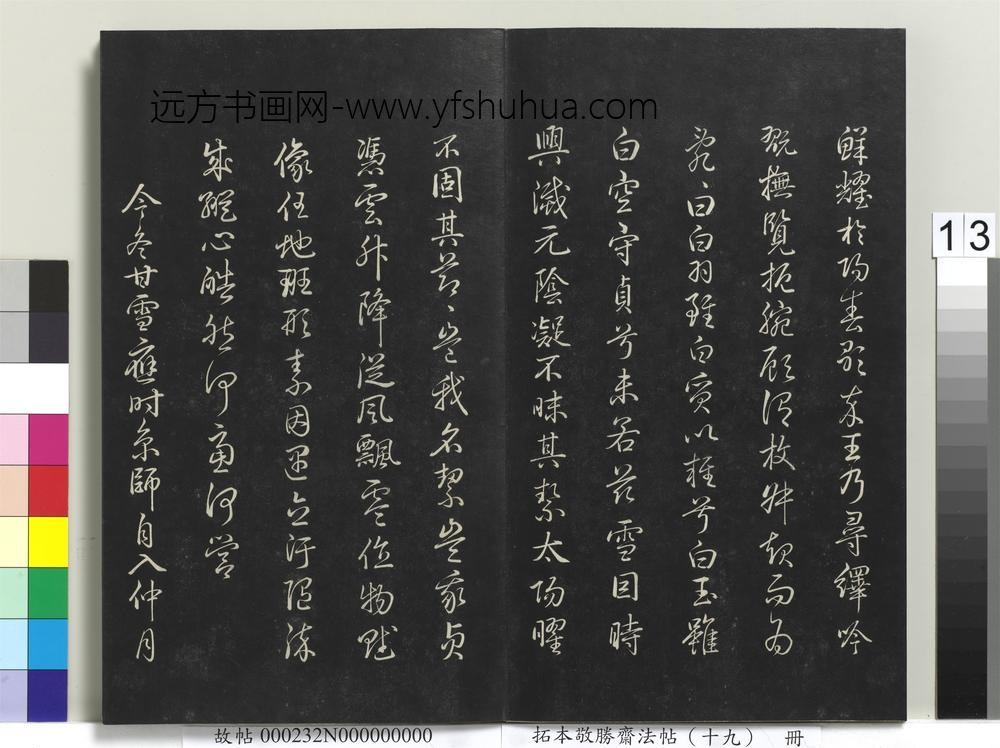 鮮耀於陽春歌卒王乃尋繹吟
翫撫覽扼腕顧謂枚叔起而為
亂〻曰白羽雖白質以輕兮白玉雖
白空守貞兮未若茲雪因時
興滅元陰凝不昧其絜太陽曜
不固其節〻豈我名絜豈我貞
憑雲升降從風飄零值物賦
像任地班形素因遇立汙隨染
成縱心皓然何慮何營
今冬甘雪應時京師自入仲月
远方书画网-www.yfshuhua.com
13
故帖 000232N000000000
拓本敬勝齋法帖（十九） 冊